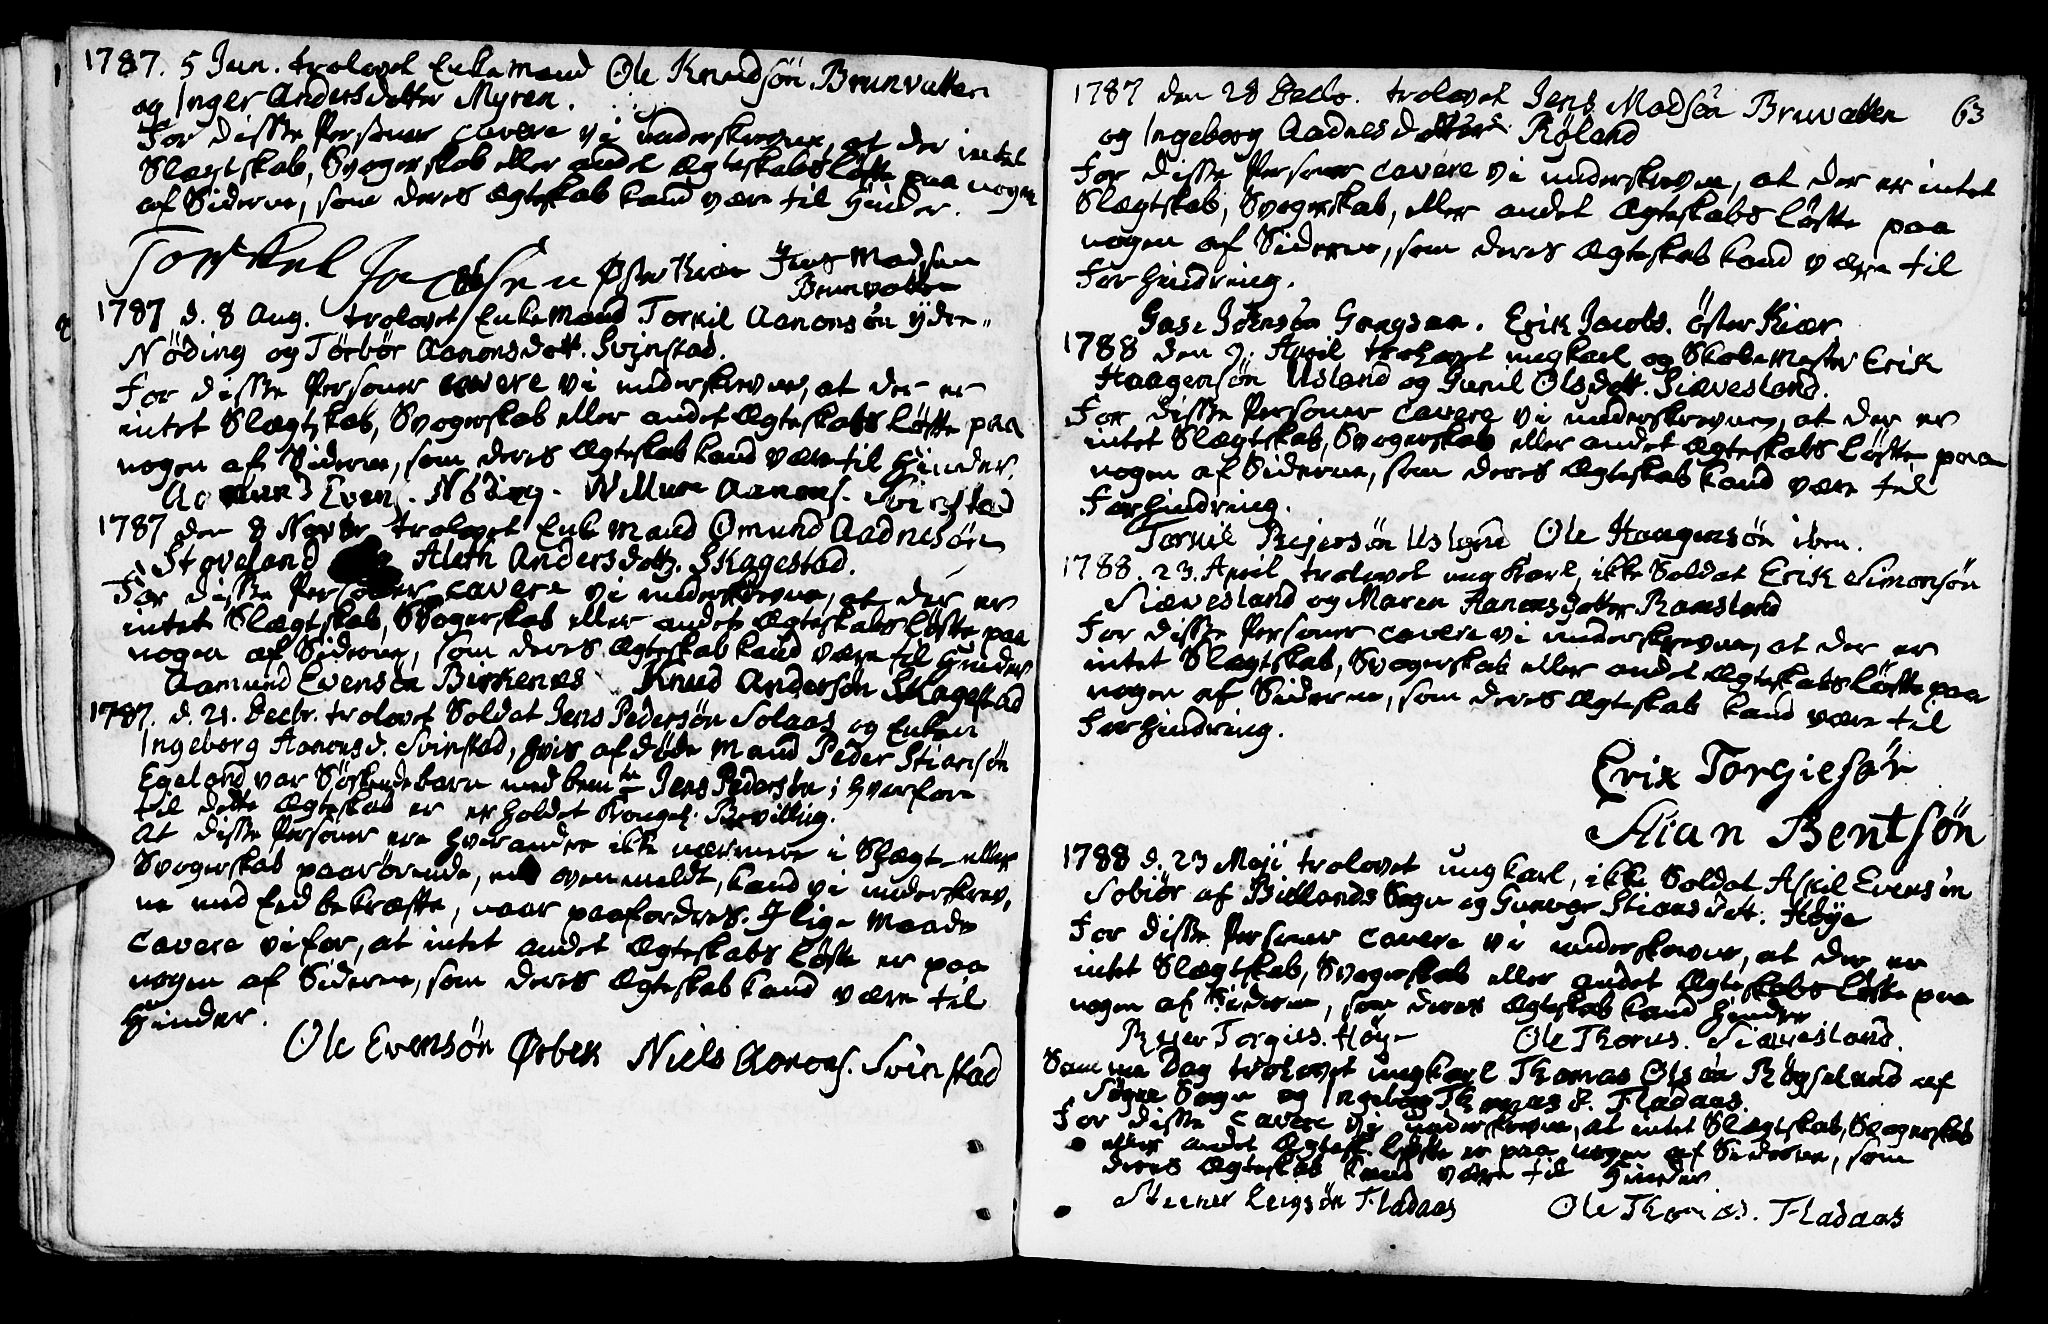 1787. 5 Jun. trolovet Enkemand Ole Knudsøn Brunvatten
og Inger Andersdotter Myren.
For disse Personer cavere vi underskrevne, at der intet
Slægtskab, Svogerskab eller andet Ægteskabs Løfte paa nogen
af Siderne, som deres Ægteskab kand være til Hinder.
Torkel Jacobsen Østerkier Jens Madsen
Brunvatten
1787 d. 8 Aug. trolovet Enkemand Torkil Aanonsøn ydre-
Nöding og Törbör Aanonsdott. Svinstad.
For disse Personer cavere vi underskrevne, at der er
intet Slægtskab, Svogerskab eller andet Ægteskabs Løfte paa
nogen af Siderne, som deres Ægteskab kand være til Hinder.
Aamund Evens. Nöding. Willum Aanons. Svinstad
1787 den 8 Novbr trolovet Enkemand Omund Aadnesøn
Stoveland Aleth Andersdottr. Skagestad.
For disse Personer cavere vi underskrevne, at der er
intet Slægtskab, Svogerskab eller andet Ægteskabs Løfte paa
nogen af Siderne, som deres Ægteskab kand være til Hinder
Aamund Evensön Birkenes Knud Andersön Skagestad
1787. d. 21. Decbr. trolovet Soldat Jens Pedersøn Solaas og Enken
Ingeborg Aanonsd. Svinstad, hvis afdøde Mand Peder Stiansøn
Egeland var Søskendebarn med bemte Jens Pedersøn; hvorfore
til dette Ægteskab er erholdet Kongel. Bevilling.
At disse Personer ere hverandre ikke nærmere i Slægt- eller
Svogerskab paarørende, end ovenmeldt, kand vi underskrev,
ne med Eed bekræfte, naar paafordres. I lige Maade
cavere vi for, at intet andet Ægteskabs Løfte er paa
nogen af Siderne, som deres Ægteskab kand være til
Hinder.
Ole Evensön Ørbek Niels Aanons. Svinstad
1787 den 28 Decbr. trolovet Jens Madsön Bruvatten 63
og Ingeborg Aadnesdotter Røland
For disse Personer cavere vi underskrevne, at der er intet
Slægtskab, Svogerskab, eller andet Ægteskabs Løfte paa
nogen af Siderne, som deres Ægteskab kand være til
Forhindring.
Jensön Erik Jacobs. öster Kiær
1788 den 9. April trolovet ungkarl og Skolemester Erik
Haagensøn Usland og Gunil Olsdott. Siævesland.
For disse Personer cavere vi underskrevne, at der er
intet Slægtskab, Svogerskab eller andet Ægteskabs Løfte paa
nogen af Siderne, som deres Ægteskab kand være til
Forhindring.
Torkil Rejersön Usland Ole Haagensön ibm.
1788. 23. April trolovet ungkarl, ikke Soldat Erik Simonsøn
Siævesland og Maren Aanonsdotter Ramsland
For disse Personer cavere vi underskrevne, at der er
intet Slægtskab, Svogerskab eller andet Ægteskabs Løfte paa
nogen af Siderne, som deres Ægteskab kand være til
Forhindring.
Erik Torgiesön
Stian Bentsøn
1788 d. 23 Maji trolovet ungkarl, ikke Soldat Askil Evensön
Sobiör af Biellands Sogn og Gunvor Stiansdott. Høye
For disse Personer cavere vi underskrevne, at der er
intet Slægtskab, Svogerskab eller andet Ægteskabs Løfte paa
nogen af Siderne, som deres Ægteskab kand Hindre
Rejer Torgies. Høye Ole Thomes. Siævesland.
Samme Dag trolovet ungkarl Thomas Olsön Röyseland af
Søgne Sogn og Ingeborg Thomasd. Fladaas.
For disse cavere vi underskrevne, at intet Slægtskab, Svogerskab
eller andet Ægtesk. Løfte er paa nogen af Siderne, som
deres Ægteskab kand være til Hinder
Steener Fladaas Ole Thomas. Fladaas